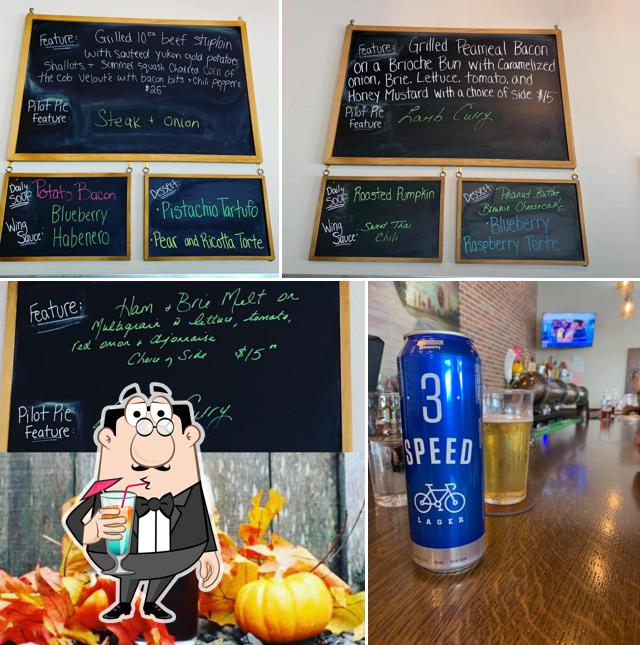 Feature: Grilled 10oz beef striploin
with sauteed yukon gold potatoes,
Shallots, + Summer squash Charred Corn of
the Cob Velouté with bacon bits + Chili peppers
$26
Pilot Pie
Feature
Steak + Onion
Daily
Soup:
Potato Bacon
Wing
Sauce:
Blueberry
Habenero
Dessert:
• Pistachio Tartufo
• Pear and Ricotta Torte
Feature: Grilled Peameal Bacon
on a Brioche Bun with Caramelized
onion, Brie, Lettuce, tomato, and
Honey Mustard with a choice of side $15
Pilot Pie
Feature
Lamb Curry
Daily
Soup:
Roasted Pumpkin
Wing
Sauce:
• Sweet Thai
Chili
Dessert:
Peanut Butter
Brownie Cheesecake
• Blueberry
Raspberry Torte
Feature:
Ham + Brie Melt on
Multigrain w lettuce, tomato,
red onion + dijonnaise
Choice of Side $15
Pilot Pie
Feature:
Curry
AMSTERDAM
3
SPEED
LAGER